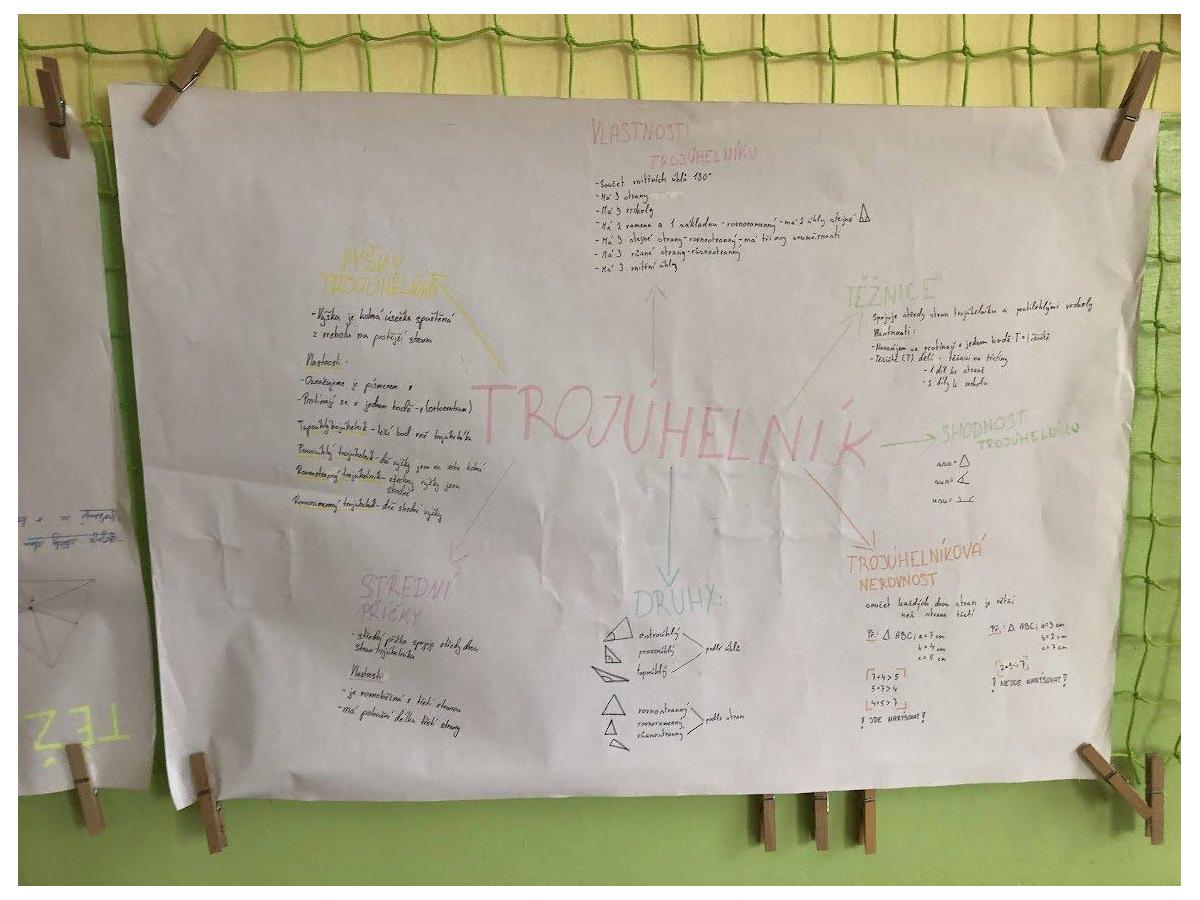 VLASTNOSTI
TROJÚHELNÍKU
-Součet vnitřních úhlů 180°
-Má 3 strany
-Má 3 vrcholy
-Má 2 ramena a 1 základnu -rovnoramenný -má 2 úhly stejné
-Má 3 stejné strany-rovnostranný-má tři osy souměrnosti
-Má 3 různé strany-různostranný
-Má 3 vnitřní úhly
VÝŠKY
TROJÚHELNÍKU
-Výška je kolmá úsečka spuštěná
z vrcholu na protější stranu
Vlastnosti:
-Označujeme je písmenem v
-Protínají se v jednom bodě -v (ortocentrum)
Tupoúhlý trojúhelník - leží bod vně trojúhelníku
Pravoúhlý trojúhelník-dvě výšky jsou na sebe kolmé
Rovnostranný trojúhelník- všechny výšky jsou
shodné
Rovnoramenný trojúhelník-dvě shodné výšky
TĚŽNICE
Spojuje středy stran trojúhelníku a protilehlými vrcholy
Vlastnosti:
-Navzájem se protínají v jednom bodě T = těžiště
-Těžiště (T) dělí těžnici na třetiny
-1 díl ke straně
-2 díly k vrcholu
TROJÚHELNÍK
SHODNOST
TROJÚHELNÍKU
sss=
sus=
usu=
STŘEDNÍ
PŘÍČKY
-střední příčka spojuje středy dvou
stran trojúhelníka
Vlastnosti
- je rovnoběžná s třetí stranou
-má poloviční délku třetí strany
DRUHY:
ostroúhlý
pravoúhlý
tupoúhlý
podle úhlů
rovnostranný
rovnoramenný
různostranný
podle stran
TROJÚHELNÍKOVÁ
NEROVNOST
součet každých dvou stran je větší
než strana třetí
Př.: Δ ABC; a=7 cm
b=4 cm
c=5 cm
7+4>5
5+7>4
4+5>7
! JDE NARÝSOVAT!
Př.: Δ ABC; a=3 cm
b=2 cm
c=7 cm
2+3<7
! NEJDE NARÝSOVAT!
TĚŽ